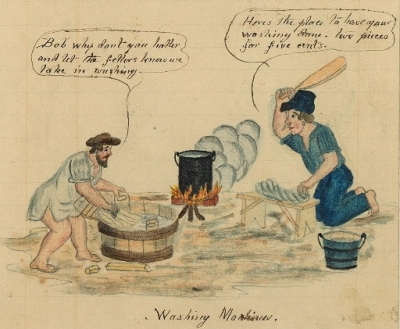 Bob why dont you haller
and let the fellers know we
take in washing.
Here's the place to have your
washing done. two pieces
for five cents.
Washing Machines.